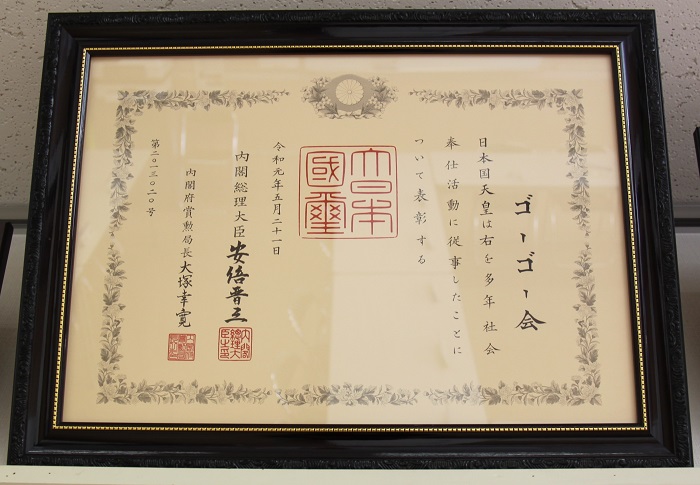 ゴーゴー会
日本国天皇は右を多年社会
奉仕活動に従事したことに
ついて表彰する
大日本
國璽
令和元年五月二十一日
内閣総理大臣 安倍晋三
内閣総理大臣之印
内閣府賞勲局長 大塚幸寛
第二〇一三〇二〇号